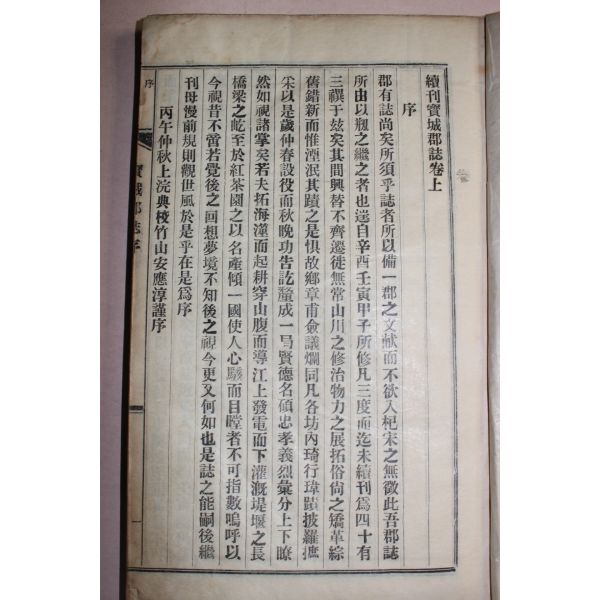 續刊寶城郡誌卷上
序
郡有誌尚矣所須乎誌者所以備一郡之文献而不欲入杞宋之無徵此吾郡誌
所由以刱之繼之者也迷自辛酉壬寅甲子所修凡三度而迄未續刊爲四十有
三禩于玆矣其間興替不齊遷徙無常山川之修治物力之展拓俗尙之矯革綜
舊錯新而惟湮泯其蹟之是惧故鄕章甫僉議爛同凡各坊內琦行瑋蹟披羅摭
采以是歲仲春設役而秋晚功告訖釐成一局賢德名碩忠孝義烈彙分上下瞭
然如視諸掌矣若夫拓海潼而起耕穿山腹而導江上發電而下灌漑堤堰之長
橋梁之屹至於紅茶園之以名產傾一國使人心駭而目瞠者不可指數嗚呼以
今視昔不啻若覺後之回想夢境不知後之視今更又何如也是誌之能嗣後繼
刊毋慢前規則觀世風於是乎在是爲序
丙午仲秋上浣典校竹山安應淳謹序
序
寶城郡誌
一